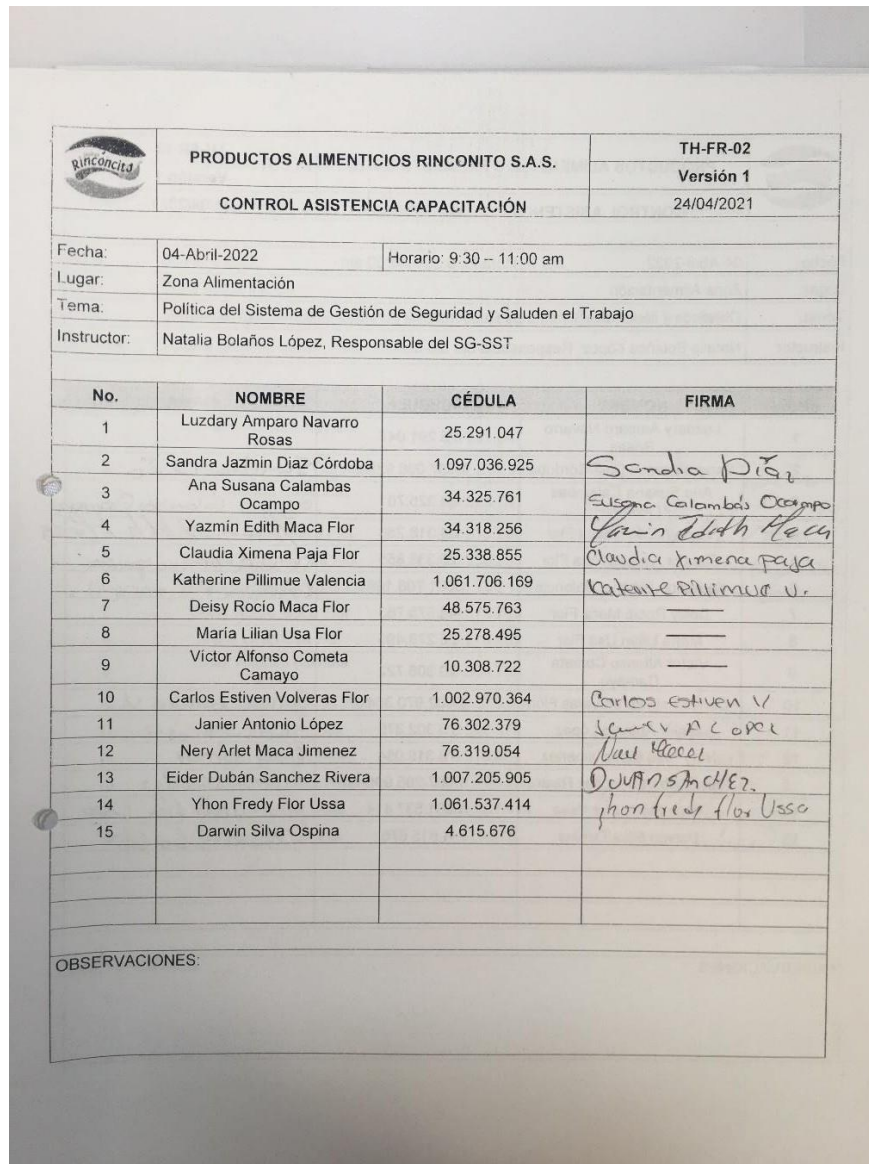 Rinconcito
PRODUCTOS ALIMENTICIOS RINCONITO S.A.S.
TH-FR-02
Versión 1
CONTROL ASISTENCIA CAPACITACIÓN
24/04/2021
Fecha: 04-Abril-2022 Horario: 9:30 – 11:00 am
Lugar: Zona Alimentación
Tema: Política del Sistema de Gestión de Seguridad y Saluden el Trabajo
Instructor: Natalia Bolaños López, Responsable del SG-SST
No. NOMBRE CÉDULA FIRMA
1 Luzdary Amparo Navarro
Rosas 25.291.047
2 Sandra Jazmin Diaz Córdoba 1.097.036.925 Sandra Díaz
3 Ana Susana Calambas
Ocampo 34.325.761 Susana Calambás Ocampo
4 Yazmín Edith Maca Flor 34.318.256 Yazmin Edith Maca
5 Claudia Ximena Paja Flor 25.338.855 Claudia Ximena paja
6 Katherine Pillimue Valencia 1.061.706.169 Pillimue V.
7 Deisy Rocío Maca Flor 48.575.763
8 María Lilian Usa Flor 25.278.495
9 Víctor Alfonso Cometa
Camayo 10.308.722
10 Carlos Estiven Volveras Flor 1.002.970.364 Carlos Estiven V
11 Janier Antonio López 76.302.379 A Lopez
12 Nery Arlet Maca Jimenez 76.319.054
13 Eider Dubán Sanchez Rivera 1.007.205.905 DUVAN SANCHEZ.
14 Yhon Fredy Flor Ussa 1.061.537.414 jhon fredy flor Ussa
15 Darwin Silva Ospina 4.615.676
OBSERVACIONES: